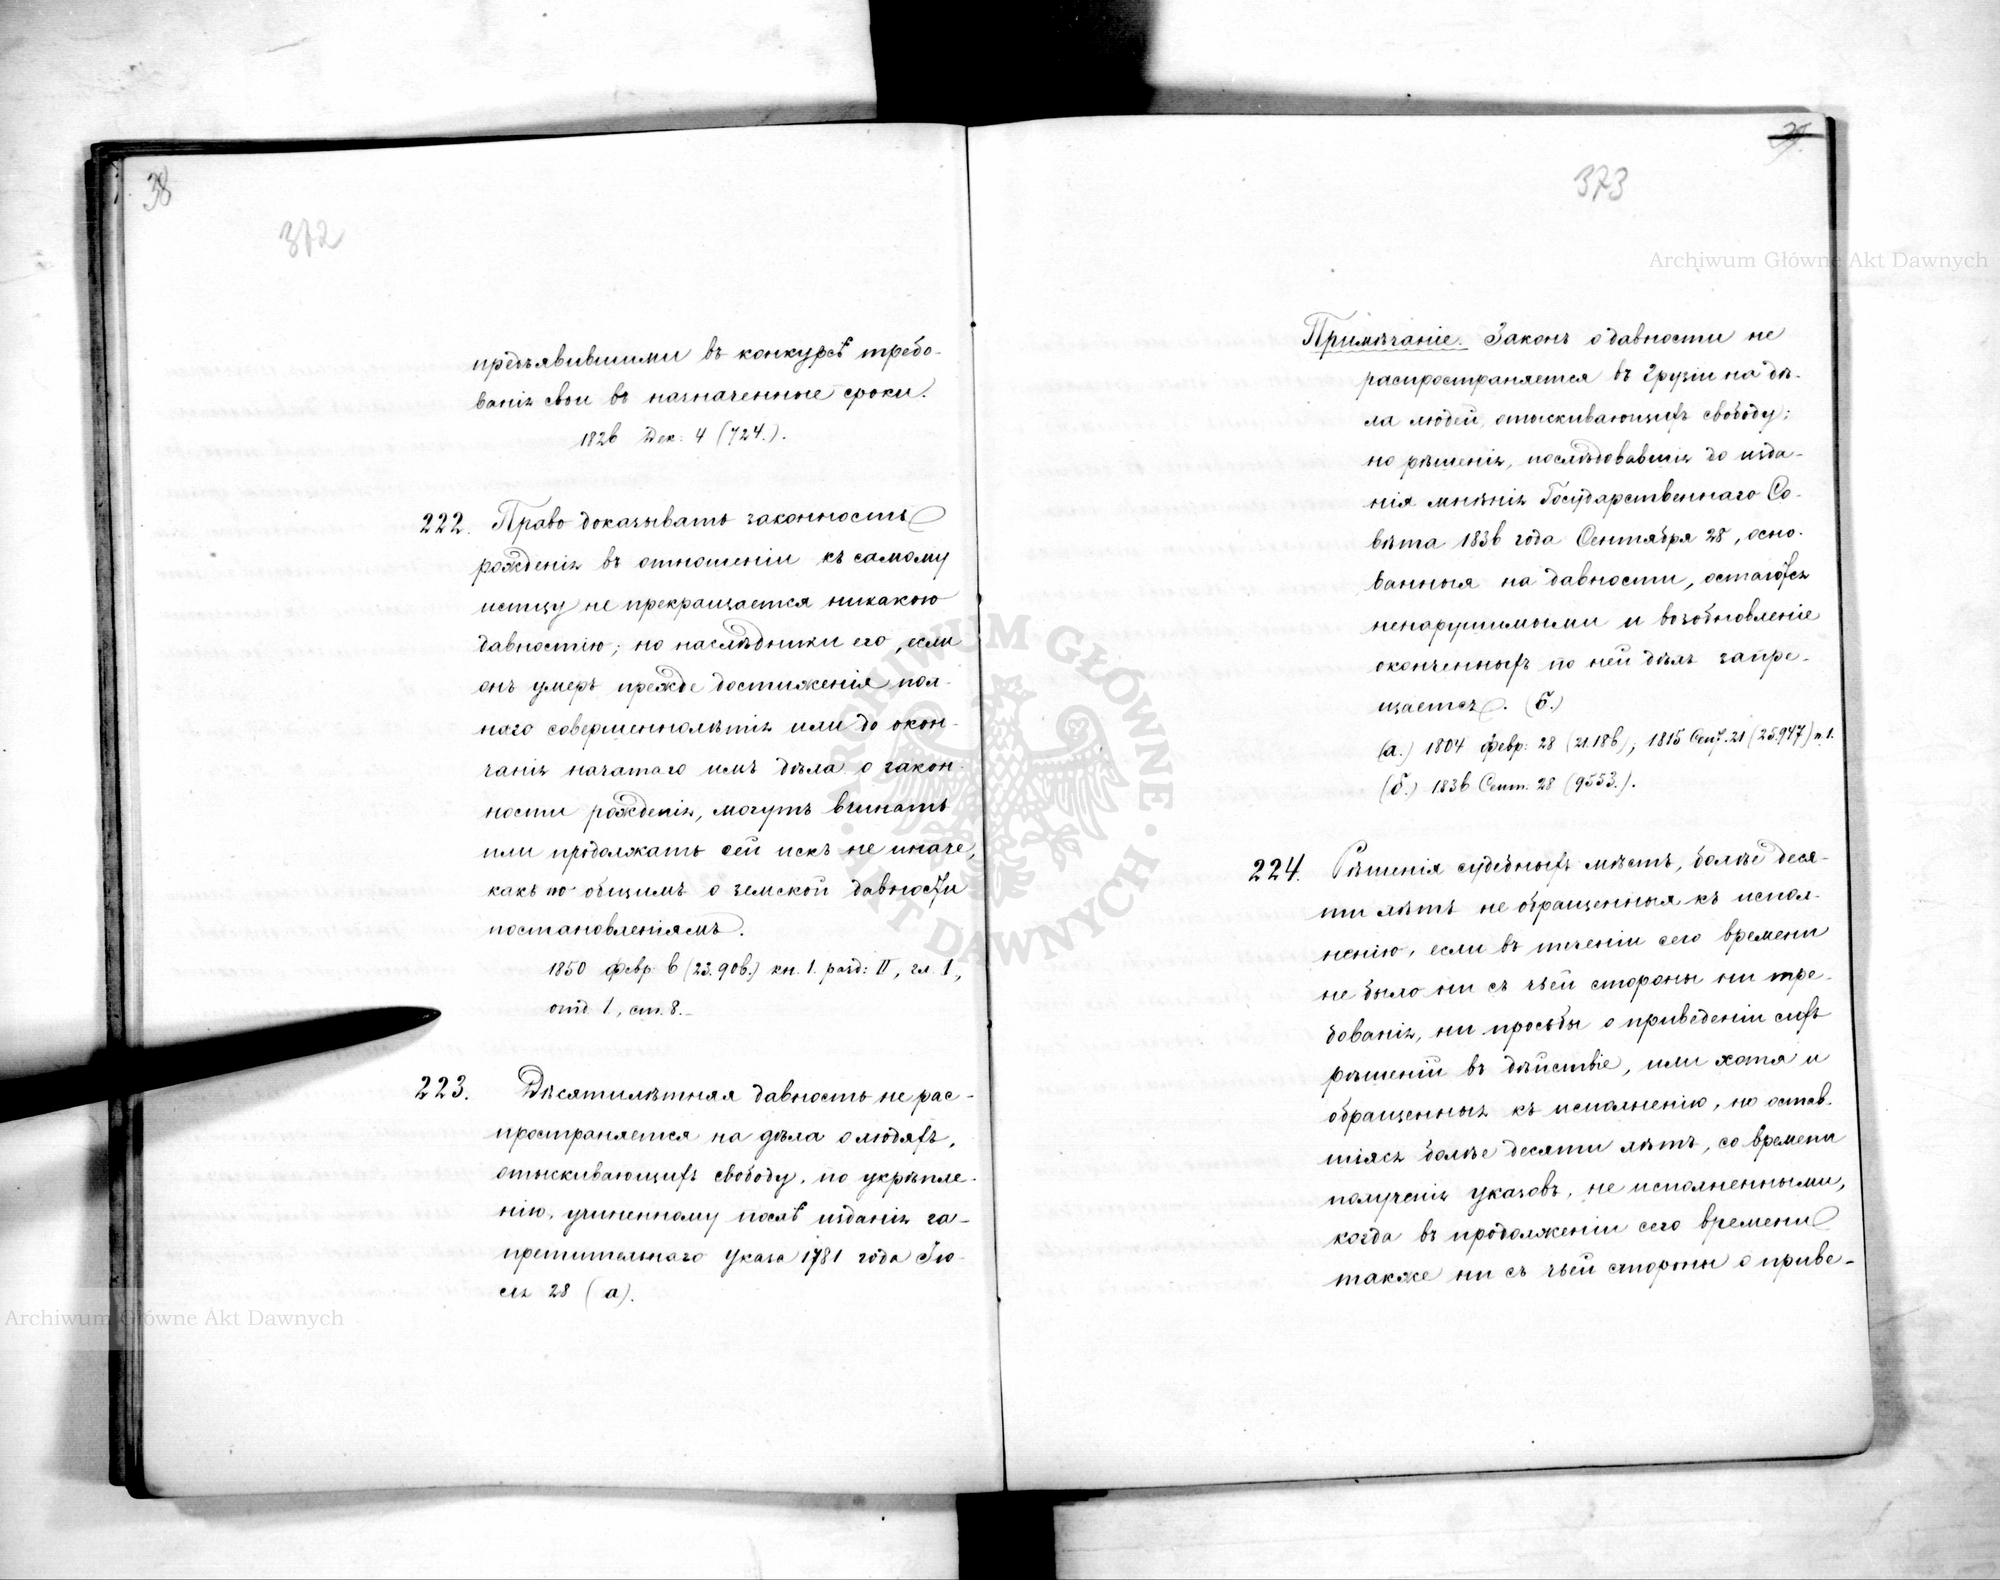 38
372
предъявившими въ конкурсѣ требо-
ванія свои въ назначенные сроки.
1826 Дек: 4 (724.).
222. Право доказывать законность
рожденія въ отношеніи къ самому
истцу не прекращается никакою
давностію; но наслѣдники его, если
онъ умеръ прежде достиженія пол-
наго совершеннолѣтія или до окон-
чанія начатаго имъ дѣла о закон-
ности рожденія, могутъ вчинать
или продолжать сей искъ не иначе,
какъ по общимъ о земской давности
постановленіямъ.
1850 Февр: 6 (23.906.) кн. 1. разд: II, гл. 1,
отд. 1, ст. 8.
223. Десятилѣтняя давность не рас-
пространяется на дѣла о людяхъ,
отыскивающихъ свободу, по укрѣпле-
нію, учиненному послѣ изданія за-
претительнаго указа 1781 года Ію-
ля 28 (а).
373
Примѣчаніе. Законъ о давности не
распространяется въ Грузіи на дѣ-
ла людей, отыскивающихъ свободу;
но рѣшенія, послѣдовавшія до изда-
нія мнѣнія Государственнаго Со-
вѣта 1836 года Сентября 28, осно-
ванныя на давности, остаются
ненарушимыми и возобновленіе
оконченныхъ по ней дѣлъ запре-
щается. (б.)
(а.) 1804 Февр: 28 (21.186), 1815 Сент. 21 (25.947) п. 1.
(б.) 1836 Сент. 28 (9553.).
224. Рѣшенія судебныхъ мѣстъ, болѣе деся-
ти лѣтъ не обращенныя къ испол-
ненію, если въ теченіи сего времени
не было ни съ чьей стороны ни тре-
бованія, ни просьбы о приведеніи сихъ
рѣшеній въ дѣйствіе, или хотя и
обращенныя къ исполненію, но остав-
шіяся болѣе десяти лѣтъ, со времени
полученія указовъ, не исполненными,
когда въ продолженіи сего времени
также ни съ чьей стороны о приве-
Archiwum Główne Akt Dawnych
Archiwum Główne Akt Dawnych
ARCHIWUM GŁÓWNE AKT DAWNYCH